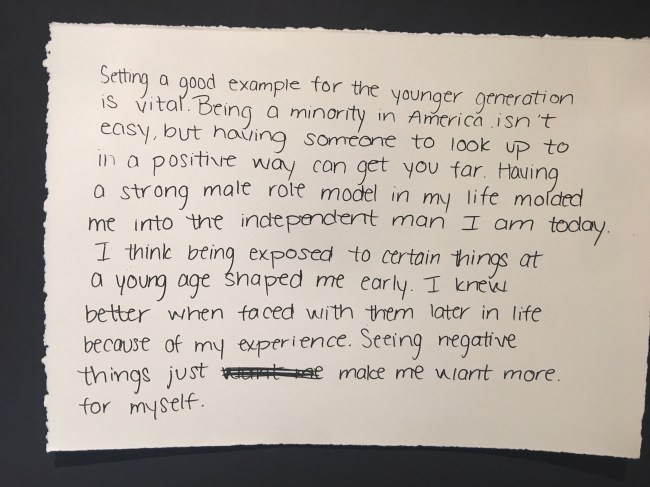 Setting a good example for the younger generation
is vital. Being a minority in America isn't
easy, but having someone to look up to
in a positive way can get you far. Having
a strong male role model in my life molded
me into the independent man I am today.
I think being exposed to certain things at
a young age shaped me early. I knew
better when faced with them later in life
because of my experience. Seeing negative
things just make me want more.
for myself.